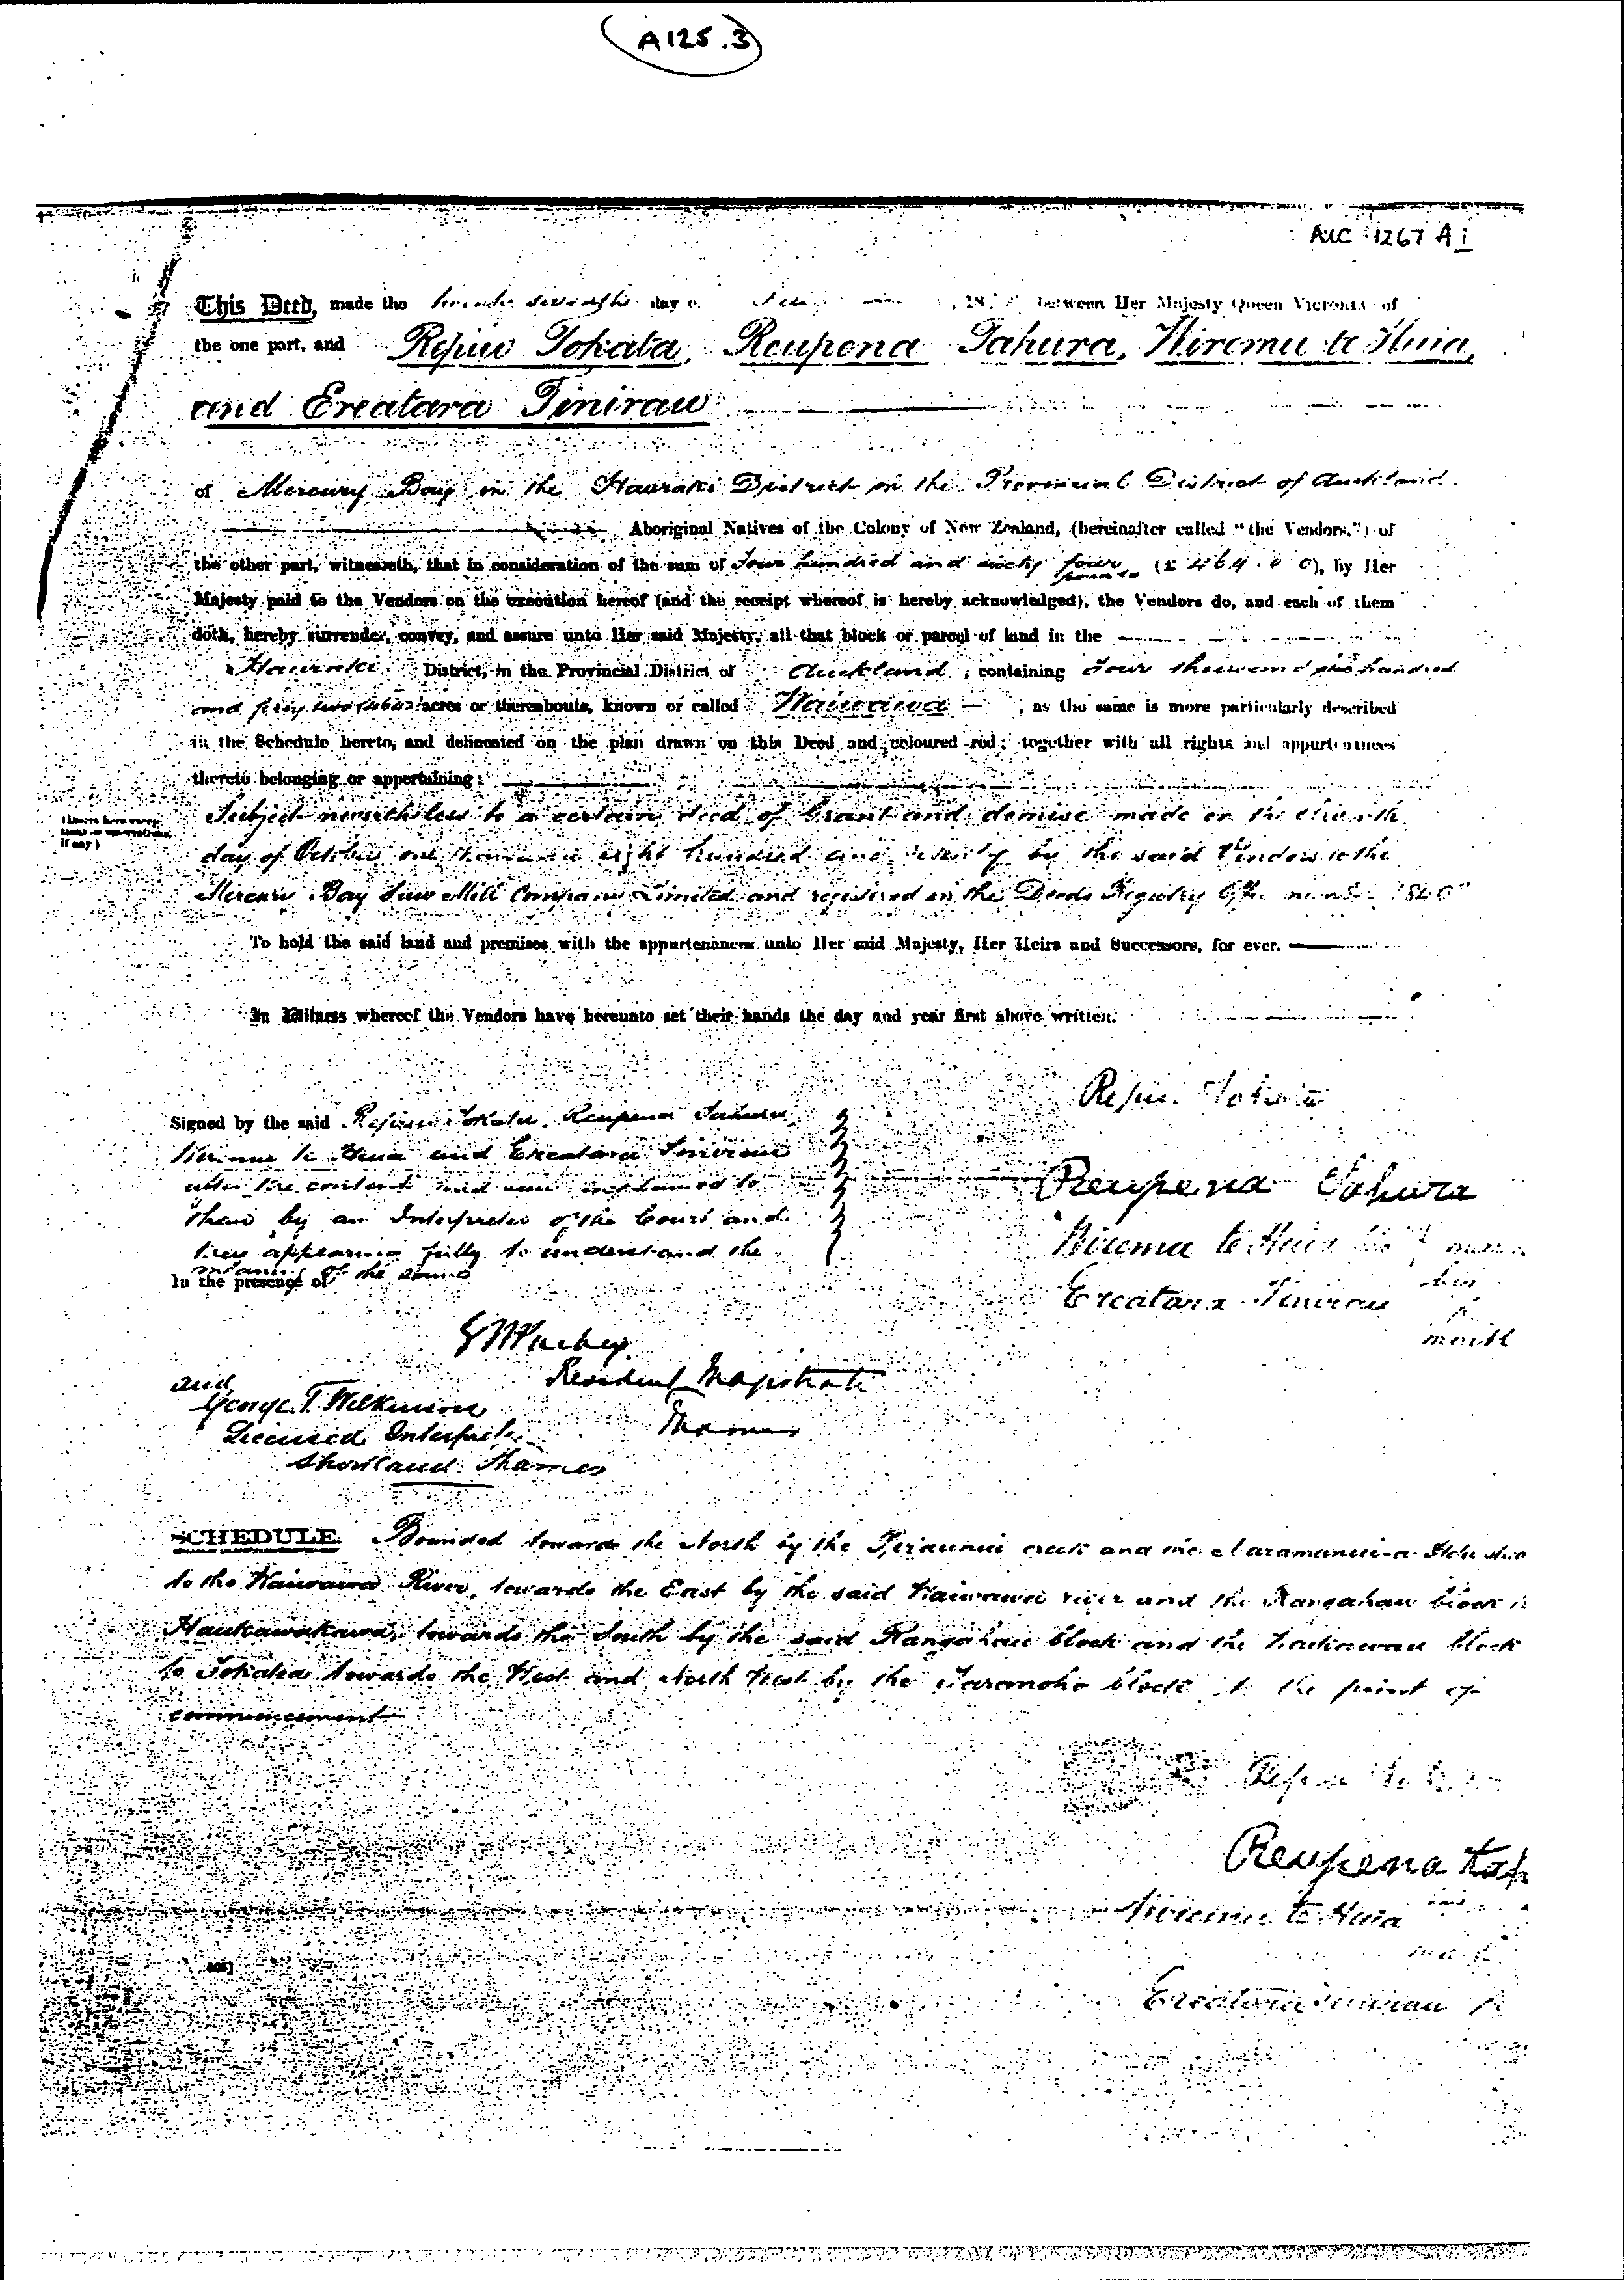 A125.3
AUC 1267 A i
This Deed, made the seventh day o 18 between Her Majesty Queen Victoria of
the one part, and Repiu Tokata, Reupena Tahura, Wiremu te Huia,
and Ereatara Tinirau
of Mercury Bay in the Hauraki District in the Provincial District of Auckland
Aboriginal Natives of the Colony of New Zealand, (hereinafter called "the Vendors,") of
the other part, witnesseth, that in consideration of the sum of Four hundred and sixty four pounds (£464.0.0), by Her
Majesty paid to the Vendors on the execution hereof (and the receipt whereof is hereby acknowledged), the Vendors do, and each of them
doth, hereby surrender, convey, and assure unto Her said Majesty, all that block or parcel of land in the
Hauraki District, in the Provincial District of Auckland, containing Four thousand six hundred
and forty two (4642) acres or thereabouts, known or called Waiwawa, as the same is more particularly described
in the Schedule hereto, and delineated on the plan drawn on this Deed and coloured red; together with all rights and appurtenances
thereto belonging or appertaining:
Subject nevertheless to a certain deed of Grant and demise made on the
day of October one thousand eight hundred and seventy by the said Vendors to the
Mercury Bay Saw Mill Company Limited and registered in the Deeds Registry Office number
To hold the said land and premises with the appurtenances unto Her said Majesty, Her Heirs and Successors, for ever.
In Witness whereof the Vendors have hereunto set their hands the day and year first above written.
Signed by the said Repiu Tokata, Reupena Tahura
Wiremu te Huia and Ereatara Tinirau
after the contents had been explained to
them by an Interpreter of the Court and
they appearing fully to understand the
meaning of the same
In the presence of
Repiu Tokata
Reupena Tahura
Wiremu te Huia his mark
Ereatara Tinirau his
mark
Resident Magistrate
Thames
and
George T. Wilkinson
Licensed Interpreter
Shortland Thames
SCHEDULE Bounded towards the North by the creek and the
to the Waiwawa River, towards the East by the said Waiwawa river and the Rangahau block
towards the South by the said Rangahau block and the block
to Tokatea towards the West and North West by the block to the point of
commencement
Reupena tah
Wiremu te Huia
Ereatara Tinirau